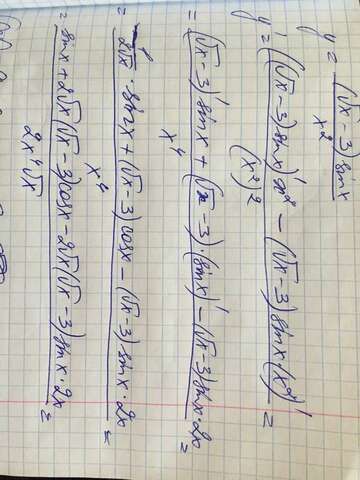 y = (√x − 3) sin x / x²
y' = (((√x − 3) sin x)' x² − (√x − 3) sin x (x²)') / (x²)² =
= ((√x − 3)' sin x + (√x − 3) · (sin x)' − (√x − 3) sin x · 2x) / x⁴ =
= (1/(2√x) · sin x + (√x − 3) cos x − (√x − 3) · sin x · 2x) / x⁴ =
= (sin x + 2√x (√x − 3) cos x − 2√x (√x − 3) sin x · 2x) / (2x⁴√x) =